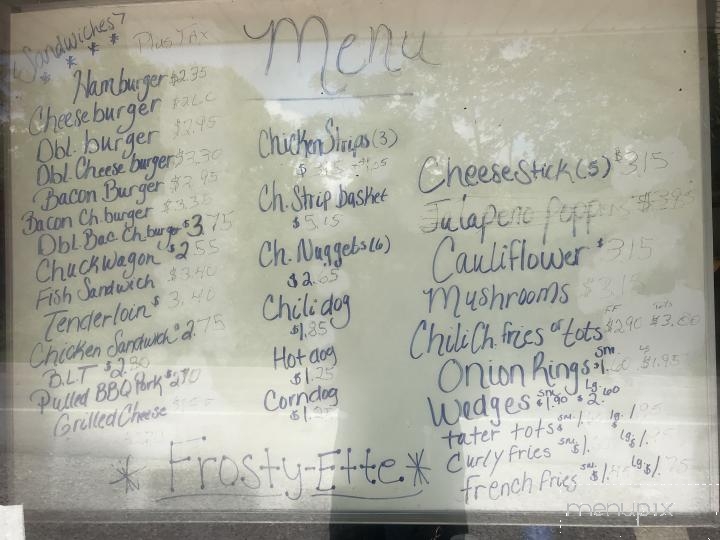 Menu
Sandwiches
Plus Tax
Hamburger $2.35
Cheeseburger
Dbl. burger $2.95
Dbl. Cheese burger
Bacon Burger $2.95
Bacon Ch. burger $3.35
Dbl. Bac. Ch. burger $3.75
Chuckwagon $2.55
Fish Sandwich $3.40
Tenderloin $3.40
Chicken Sandwich $2.75
B.L.T
Pulled BBQ Pork
Grilled Cheese
Chicken Strips (3)
Ch. Strip basket
$5.15
Ch. Nuggets (6)
$2.65
Chili dog
$1.85
Hot dog
$1.25
Corndog
Cheese Stick (5) $3.15
Jalapeno $3.95
Cauliflower $3.15
Mushrooms $3.15
Chili Ch. fries or tots FF $2.90 Tots
Onion Rings sm. Lg $1.95
Wedges sm. $1.90 Lg. $2.60
tater tots sm. lg. 1.95
Curly fries sm. lg
french fries sm. lg
* Frosty-Ette *
menupix